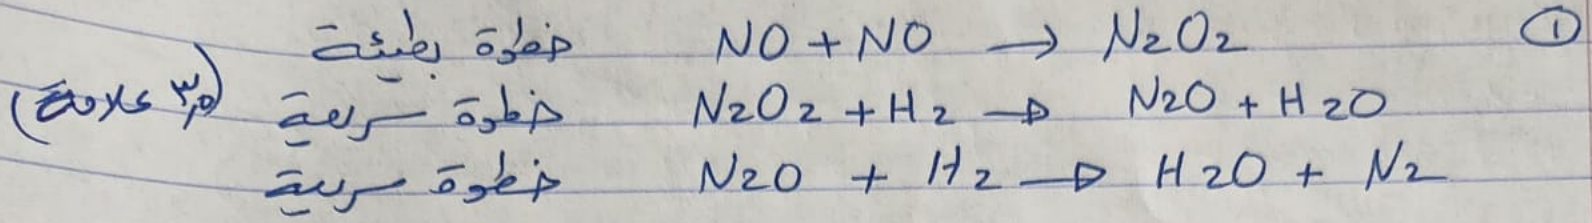 ① NO + NO → N2O2 خطوة بطيئة
N2O2 + H2 → N2O + H2O خطوة سريعة (٣,٥ علامة)
N2O + H2 → H2O + N2 خطوة سريعة